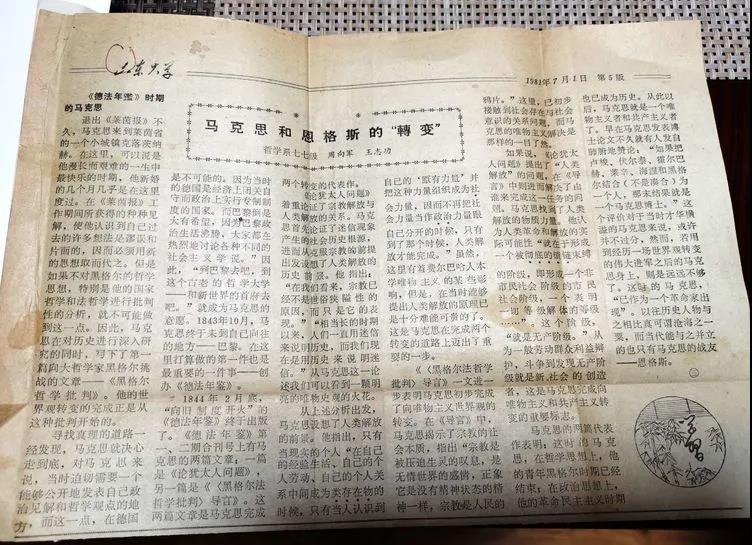 山东大学
1981年7月1日 第5版
马克思和恩格斯的“轉变”
哲学系七七级 周向军 王志功
《德法年鉴》时期
的马克思
退出《莱茵报》不
久，马克思来到莱茵省
的一个小城镇克罗茨纳
赫。在这里，可以说是
他漫长而艰难的一生中
最快乐的时期，他新婚
的几个月几乎是在这里
度过。在《莱茵报》工
作期间所获得的种种见
解，使他认识到自己过
去的许多想法是谬误和
片面的，因而必须用新
的思想取而代之。但是
如果不对黑格尔的哲学
思想，特别是他的国家
哲学和法哲学进行批判
性的分析，就不可能做
到这一点。因此，马克
思在对历史进行深入研
究的同时，写下了第一
篇向大哲学家黑格尔挑
战的文章——《黑格尔
哲学批判》。他的世
界观转变的完成正是从
这种批判开始的。
寻找真理的道路一
经发现，马克思就决心
走到底，对马克思来
说，当时迫切需要一个
能够公开地发表自己政
治见解和哲学观点的地
方，而这一点，在德国
是不可能的。因为当时
的德国是经济上闭关自
守而政治上实行专制制
度的国家。而巴黎倒是
大有希望，因为巴黎政
治生活沸腾，大家都在
热烈地讨论各种不同的
社会主义学说。”因
此，“到巴黎去吧，到
这个古老的哲学大学
——和新世界的首府去
吧。”就成为马克思的
意愿。1843年10月，马克
思终于来到自己向往
的地方——巴黎。在这
里打算做的第一件也是
最重要的一件事——创
办《德法年鉴》。
1844年2月底，
“向旧制度开火”的
《德法年鉴》终于出版
了。《德法年鉴》一
、二期合刊号上有马
克思的两篇文章，一篇
是《论犹太人问题》，
另一篇是《〈黑格尔法
哲学批判〉导言》。这
两篇文章是马克思完成
两个转变的代表作。
《论犹太人问题》
着重论述了宗教解放与
人类解放的关系。马克
思首先论证了迷信现象
产生的社会历史根源，
进而从克服宗教的前提
出发设想了人类解放的
历史前景。他指出：
“在我们看来，宗教已
经不是世俗狭隘性的
原因，而只是它的表
现。”“相当长的时期
以来，人们一直用迷信
来说明历史，而我们现
在是用历史来说明迷
信。”从马克思这一论
述我们可以看到一颗明
亮的唯物史观的火花。
从上述分析出发，
马克思设想了人类解放
的前景。他指出，只有
当现实的个人“在自己
的经验生活、自己的个
人劳动、自己的个人关
系中间成为类存在物的
时候，只有当人认识到
自己的‘原有力量’并
把这种力量组织成为社
会力量，因而不再把社
会力量当作政治力量跟
自己分开的时候，只有
到了那个时候，人类解
放才能完成。”虽然，
这里有着费尔巴哈人本
学唯物主义的某些影
响，但是，在当时能够
提出人类解放的原理已
是十分难能可贵的了。
这是马克思在完成两个
转变的道路上迈出了重
要的一步。
《〈黑格尔法哲学
批判〉导言》一文进一
步表明马克思初步完成
了向唯物主义世界观的
转变。在《导言》中，
马克思揭示了宗教的社
会本质，指出“宗教是
被压迫生灵的叹息，是
无情世界的感情，正象
它是没有精神状态的精
神一样，宗教是人民的
鸦片。”这里，已初步
接触到社会存在与社会
意识的关系问题，而马
克思的唯物主义解决是
那样的一目了然。
如果说，《论犹太人
问题》提出了“人类
解放”的问题，在《导
言》中则进而解决了由
谁来完成这一任务的问
题。马克思找到了人类
解放的物质力量。他认
为人类革命和解放的实
际可能性“就在于形成
一个被彻底的锁链束缚
的阶级，即形成一个非
市民社会阶级的市民
社会阶级，一个表明
一切等级解体的等级
……”。这个阶级，
“就是无产阶级。”从
为一般劳动群众利益辩
护，斗争到发现无产阶
级就是新社会的创造
者，这是马克思完成向
唯物主义和共产主义转
变的重要标志。
马克思的两篇代表
作表明，这时的马克
思，在哲学思想上，他
的青年黑格尔时期已经
结束；在政治思想上，
他的革命民主主义时期
也已成为历史。从此以
后，马克思就是一个唯
物主义者和共产主义者
了。早在马克思发表博
士论文不久就有人发自
肺腑地赞论：“如果把
卢梭、伏尔泰、霍尔巴
赫、莱辛、海涅和黑格
尔结合（不是凑合）为
一个人，那末结果就是
一个马克思博士。”这
个评价对于当时才华横
溢的马克思来说，或许
并不过分，然而，若用
到经历一场世界观转变
的伟大进军之后的马克
思身上，则是远远不够
了。这时的马克思，
“已作为一个革命家出
现”。以往历史人物与
之相比真可谓沧海之一
粟，而当代能与之并立
的也只有马克思的战友
——恩格斯。
㊂
学习